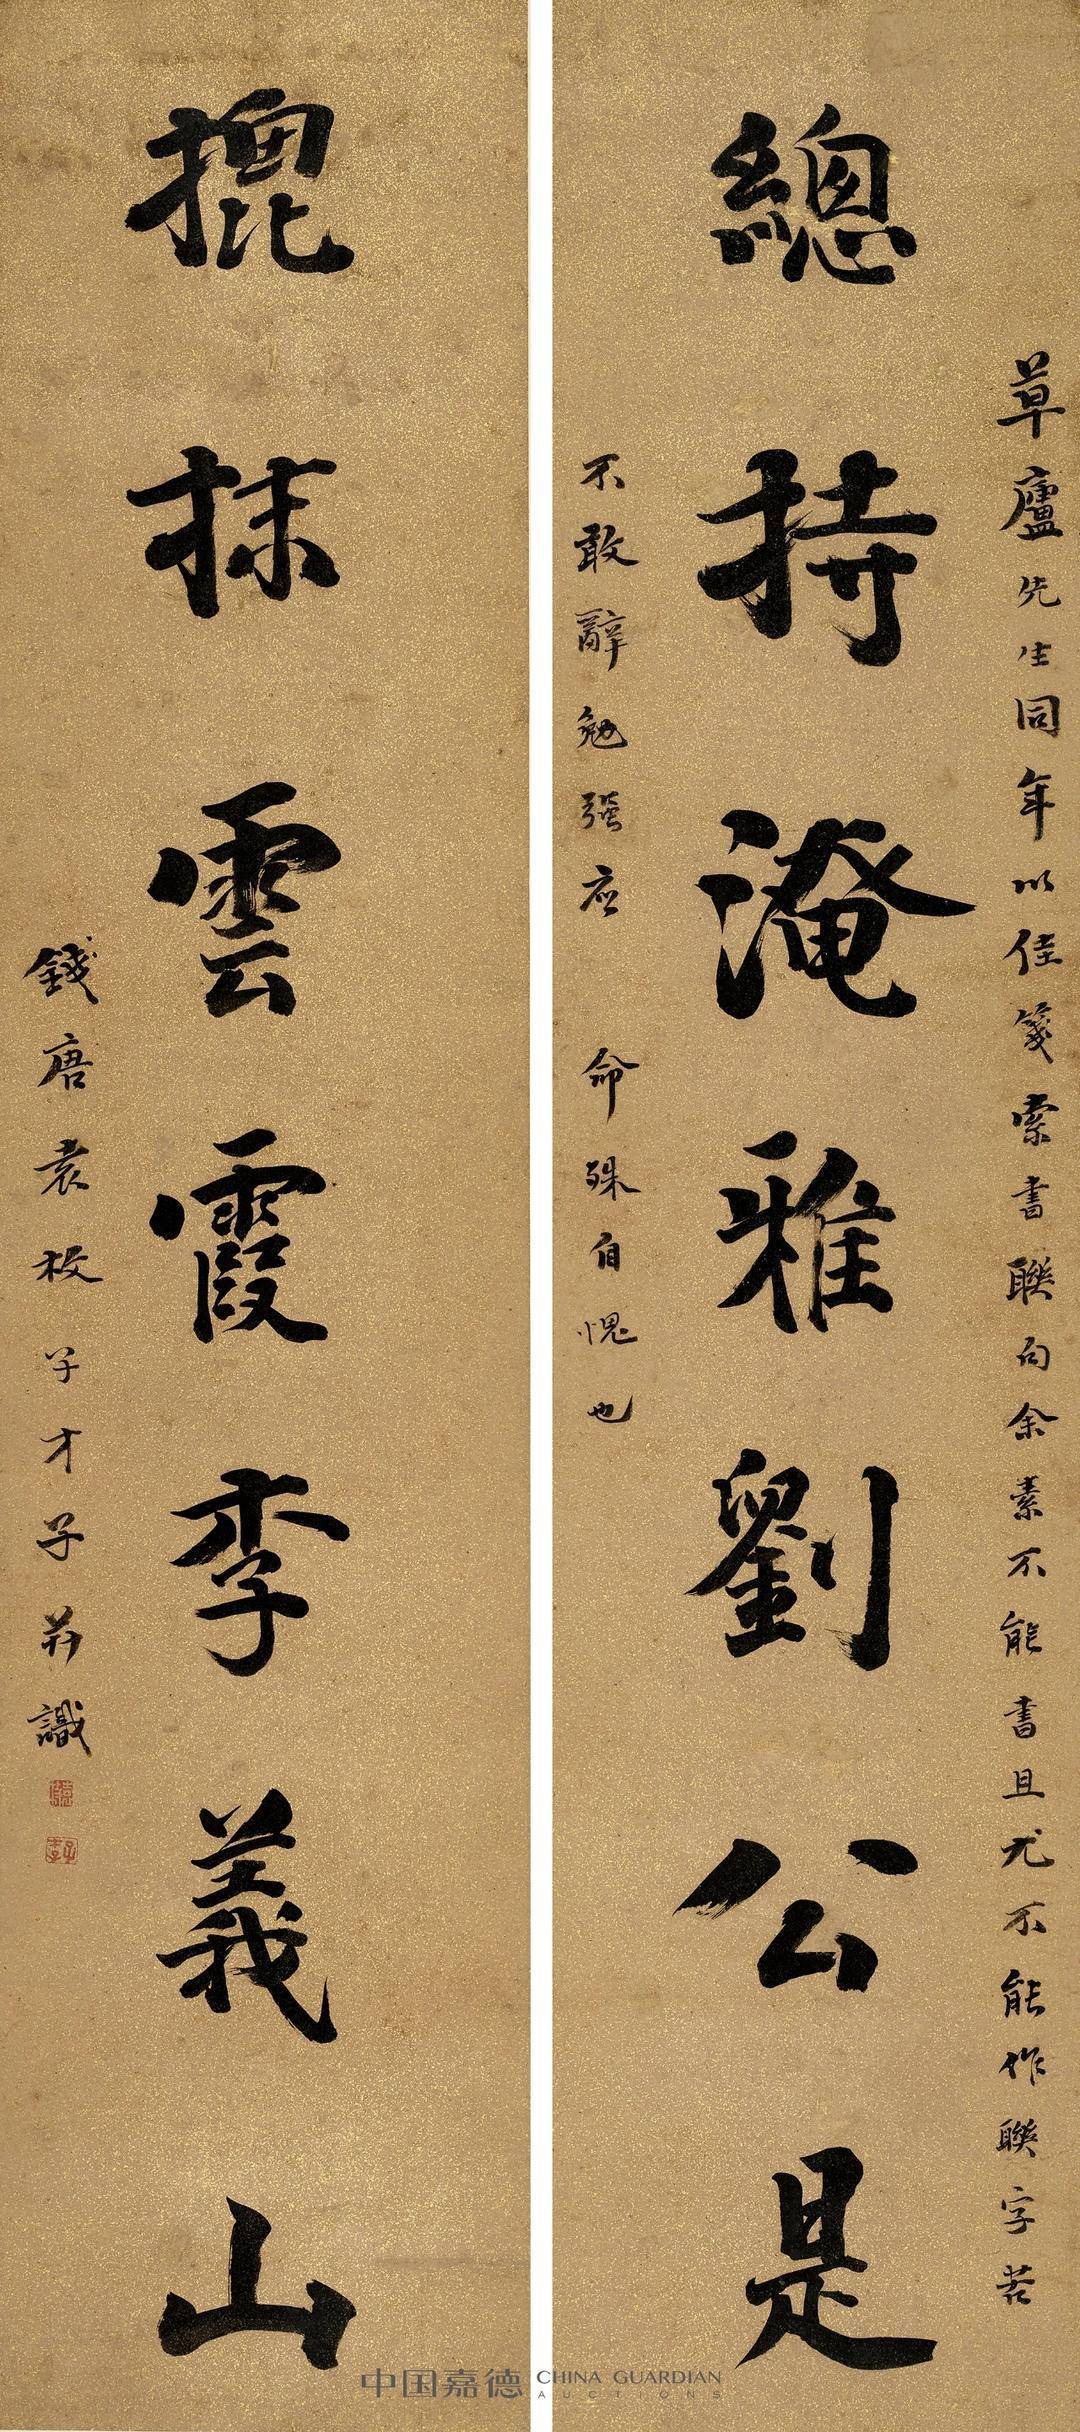 草廬先生同年以佳箋索書聯句余素不能書且尤不能作聯字苦
總持淹雅劉公是
不敢辭勉強应 命殊自愧也
抹雲霞李義山
錢唐袁枚子才子并識
中国嘉德 CHINA GUARDIAN
AUCTIONS